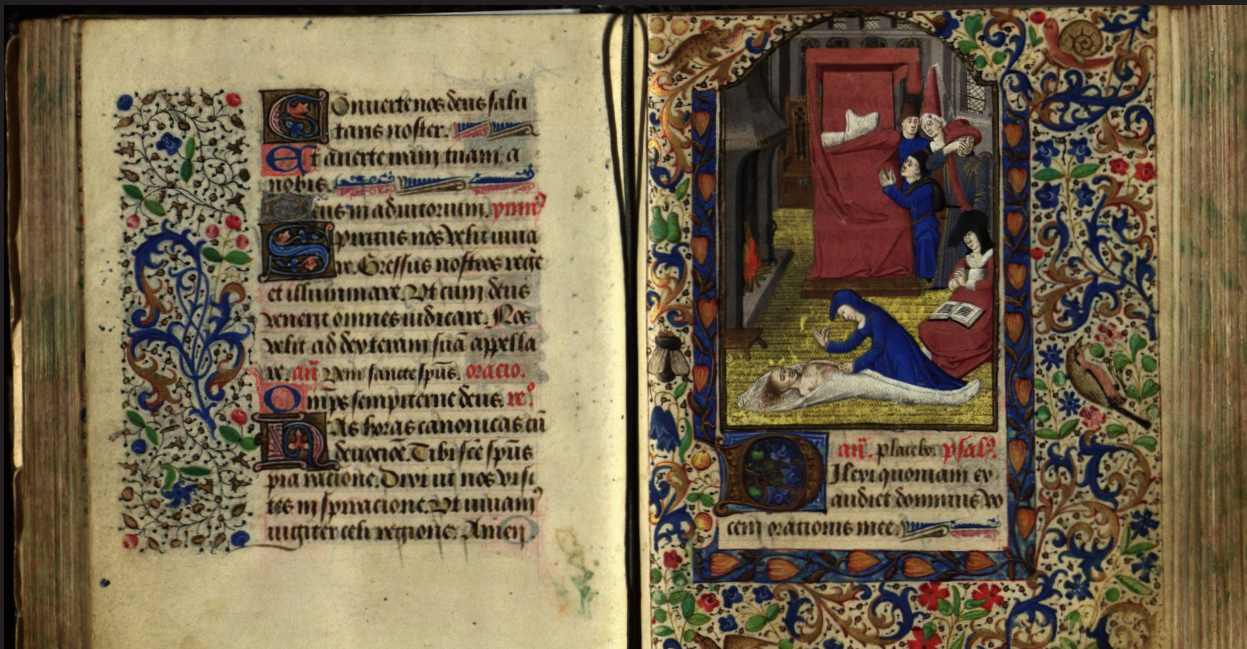 Onuerte nos deus salu
taris noster.
Et auerte iram tuam a
nobis.
Deus in adiutorium. ymn9
Spiritus nos velit uiua
re. Gressus nostros rege
et illuminare. Vt cum deus
venerit omnes iudicare. Nos
velit ad dexteram suā appella
re. an̄. Veni sancte sp̄us. oracio.
Omp̄s sempiterne deus. re9
Has horas canonicas cū
deuocioē. Tibi scē sp̄us
pia racione. Dixi ut nos visi
tes inspiracione. Vt uiuam9
iugiter celi regione. Amen
an̄. placebo. psal9
Dilexi quoniam ex
audiet dominus vo
cem orationis mee.